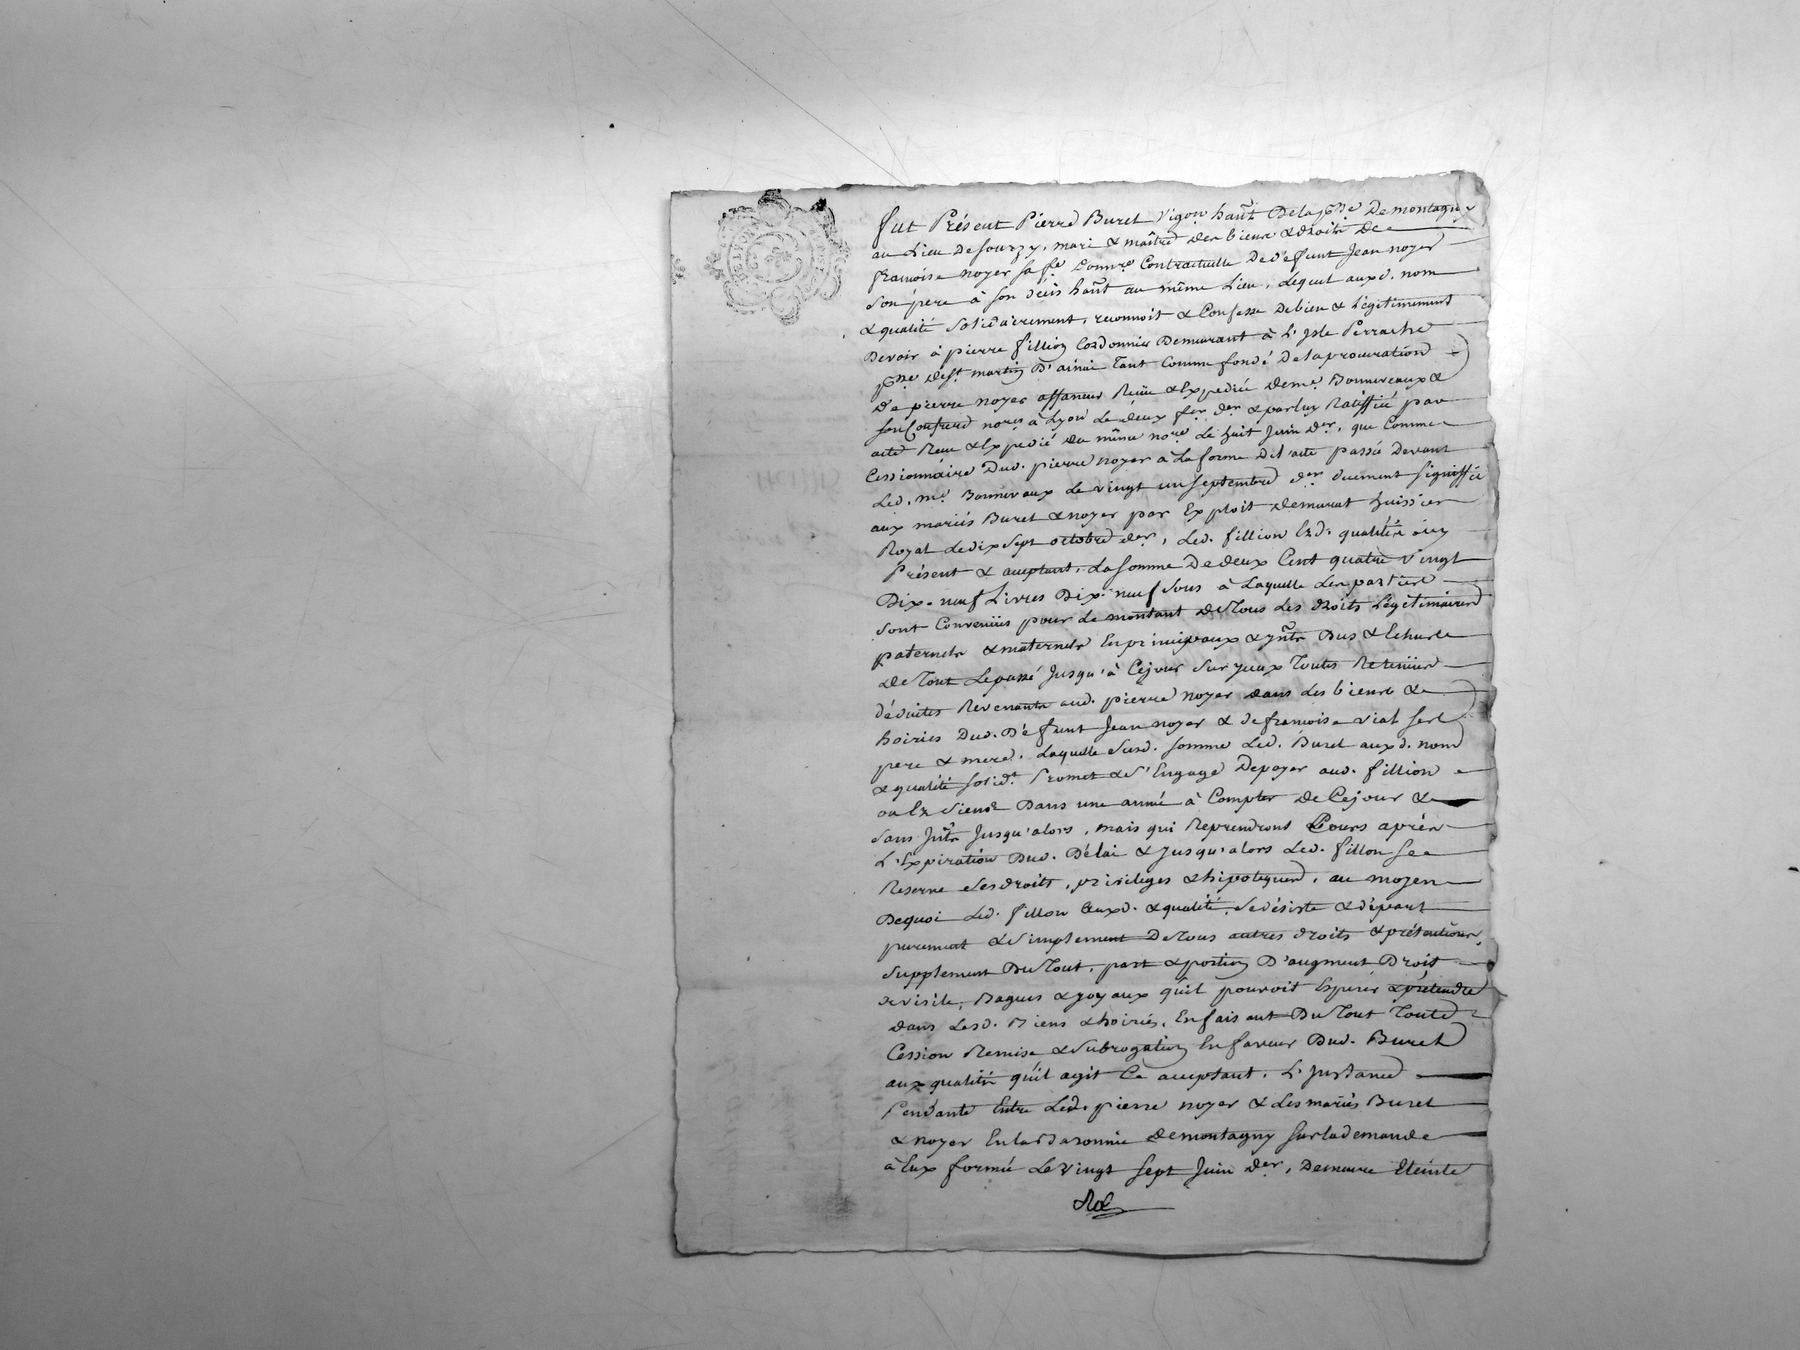 fut Présent Pierre Buret Vigon hant Dela psse De montagny
au Lieu De sourzy, mari & maître des biens & droits de
francoise noyer sa fe Donnre Contractuelle De défunt Jean noyer
son père à son décès hant au même Lieu, Lequel auxd. nom
& qualité solidairement, reconnoit & Confesse Debien & Légitimement
Devoir à pierre fillion Cordonnier Demeurant à L'Isle Perrache
psse de st martin D'ainai tant Comme fondé Dela procuration
De pierre noyer affaneur Reüe & Expediée de me Bonnevaux &
son Confrere nores à Lyon Le deux fer der & par luy Ratiffiée par
acte Reçu & Expedié du même nore Le huit Juin der, que Comme
Cessionnaire Dud. pierre noyer à La forme De l'acte passé Devant
Led. me Bonnevaux Le vingt un septembre der duement signiffié
aux mariés Buret & noyer par Exploit de murat huissier
Royal Le dix sept octobre der, Led. fillion Ezd. qualités icy
Présent & acceptant, La somme De deux Cent quatre vingt
Dix-neuf Livres Dix-neuf sous à Laquelle Les parties
sont Convenües pour Le montant De tous Les droits Légitimaires
paternels & maternels En principaux & Jnts Dus & Echus
De tout Le passé Jusqu'à Cejour sur yceux toutes Retenües
déduites Revenants aud. pierre noyer dans Les biens &
hoiries Dud. Défunt Jean noyer & de francoise vial ses
pere & mere, Laquelle susd. somme Led. Buret auxd. nom
& qualité solidt Promet & s'Engage De payer aud. fillion
ou Ez siens Dans une année à Compter de Cejour &
sans Jnts Jusqu'alors, mais qui Reprendront Cours après
L'Expiration Dud. Délai & Jusqu'alors Led. fillon se
Reserve ses droits, privileges & hipoteques, au moyen
Dequoi Led. fillon Auxd. & qualité, se désiste & départ
purement & simplement De tous autres droits & prétentions,
supplement Du tout, part & portion D'augment Droit
de visite, Bagues & joyaux qu'il pouvoit Espérer & prétendre
dans Lesd. Biens & hoiries, En faisant Du tout toute
Cession Remise & subrogation En faveur Dud. Buret
aux qualités qu'il agit Ce acceptant, L'Jnstance
Pendante Entre Led. pierre noyer & Les mariés Buret
& noyer En la Baronnie de montagny sur la demande
à Eux formée Le vingt sept Juin der, Demeure Eteinte